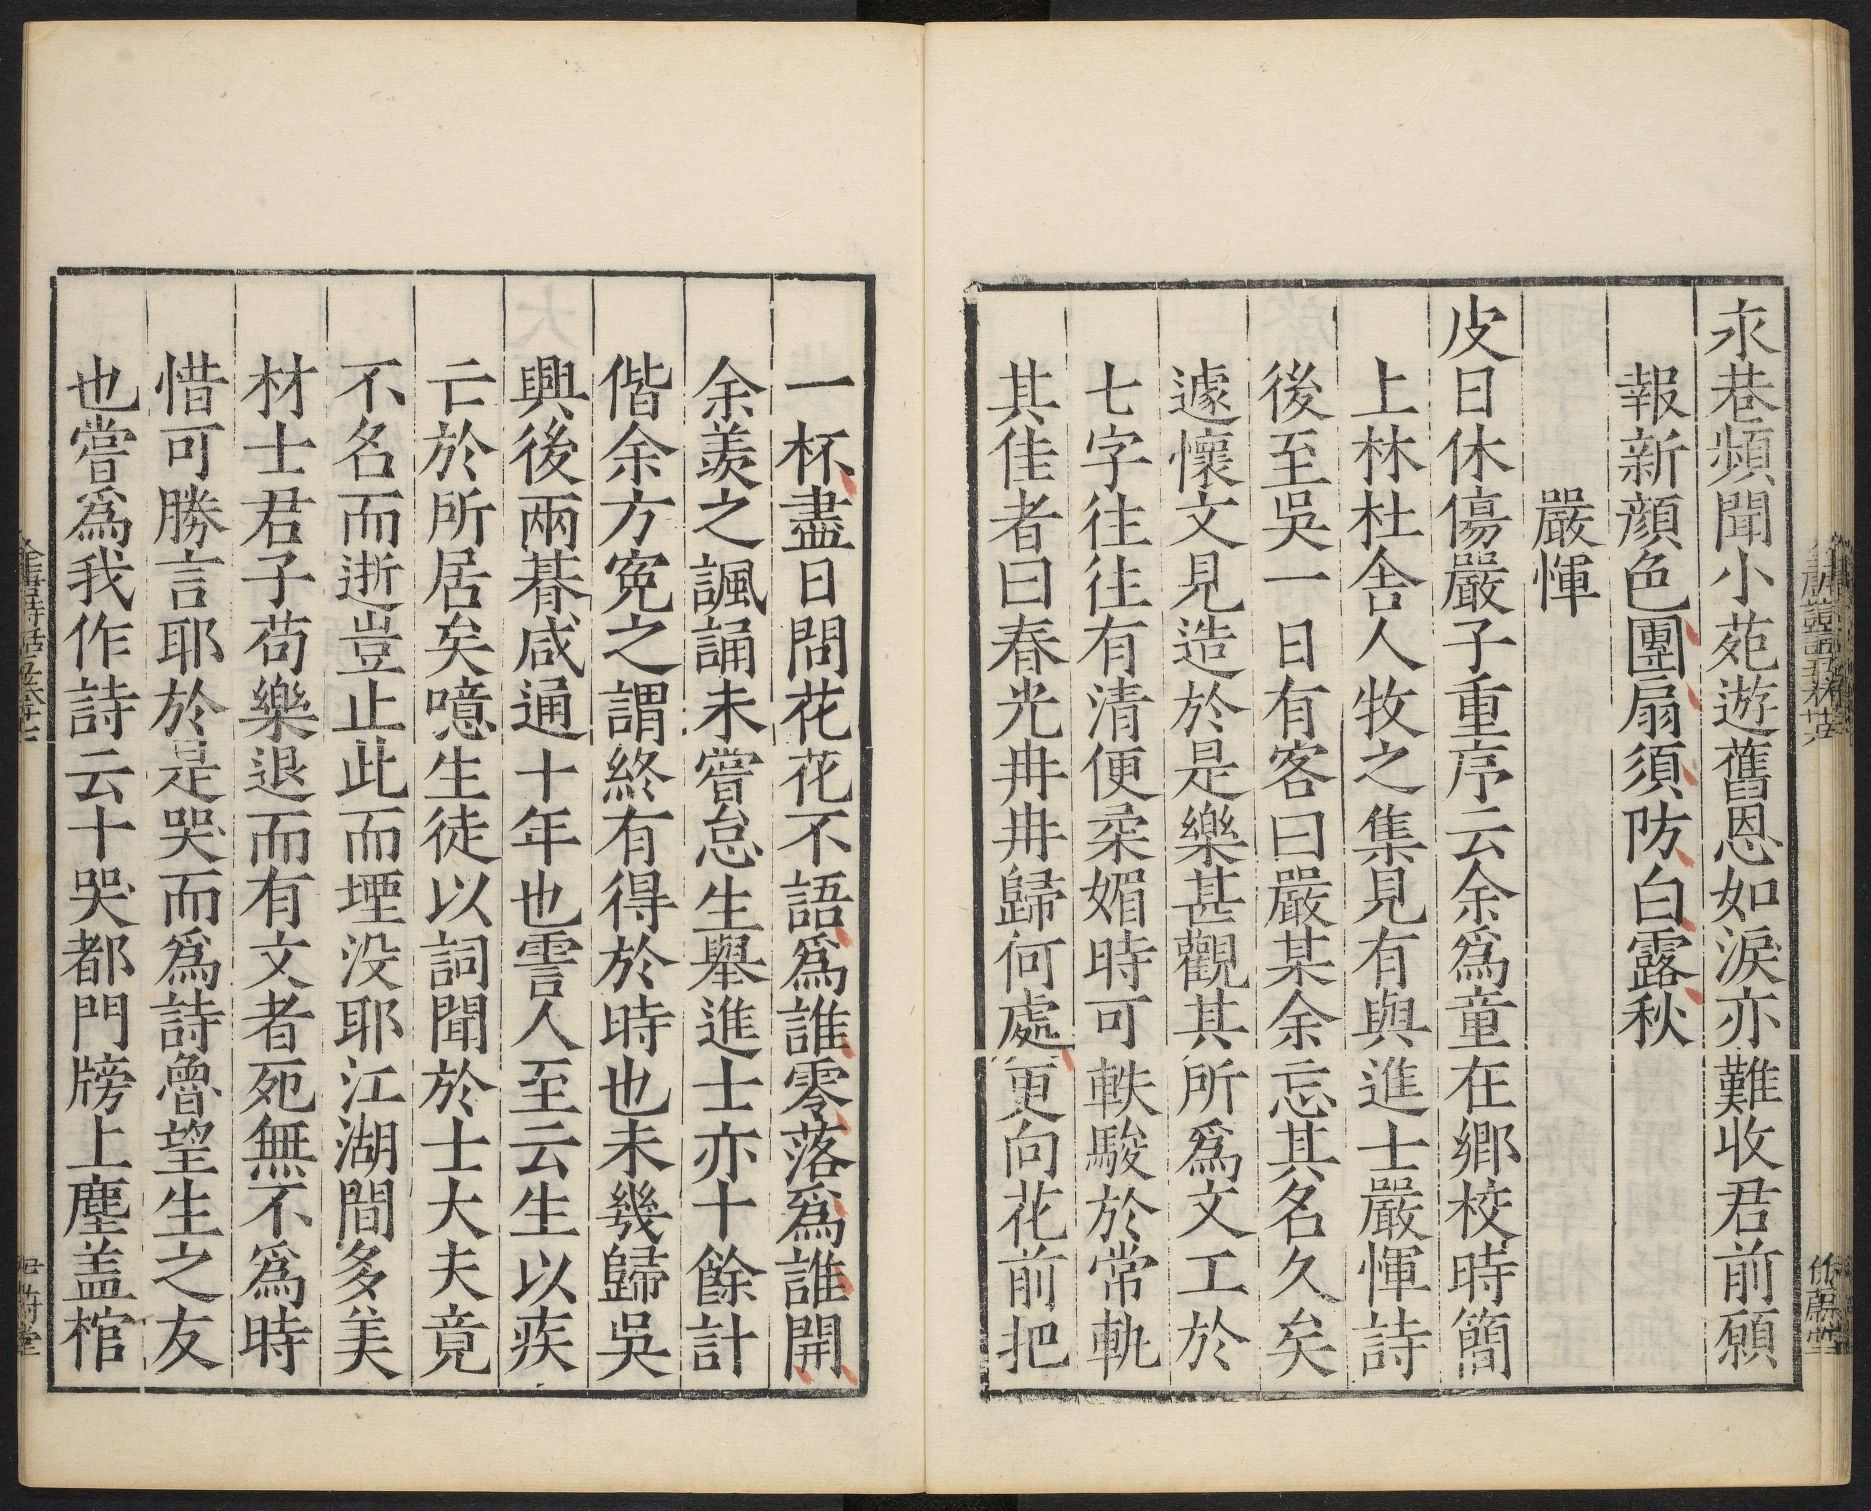 永巷頻聞小苑遊舊恩如淚亦難收君前願
報新顔色團扇須防白露秋
嚴惲
皮日休傷嚴子重序云余爲童在鄉校時簡
上林杜舍人牧之集見有與進士嚴惲詩
後至吳一日有客曰嚴某余忘其名久矣
遽懷文見造於是樂甚觀其所爲文工於
七字往往有清便柔媚時可軼駿於常軌
其佳者曰春光冉冉歸何處更向花前把
一杯盡日問花花不語爲誰零落爲誰開
余羨之諷誦未嘗怠生舉進士亦十餘計
偕余方寃之謂終有得於時也未幾歸吳
興後兩朞咸通十年也霅人至云生以疾
亡於所居矣噫生徒以詞聞於士大夫竟
不名而逝豈止此而堙没耶江湖間多美
材士君子苟樂退而有文者死無不爲時
惜可勝言耶於是哭而爲詩魯望生之友
也嘗爲我作詩云十哭都門牓上塵盖棺